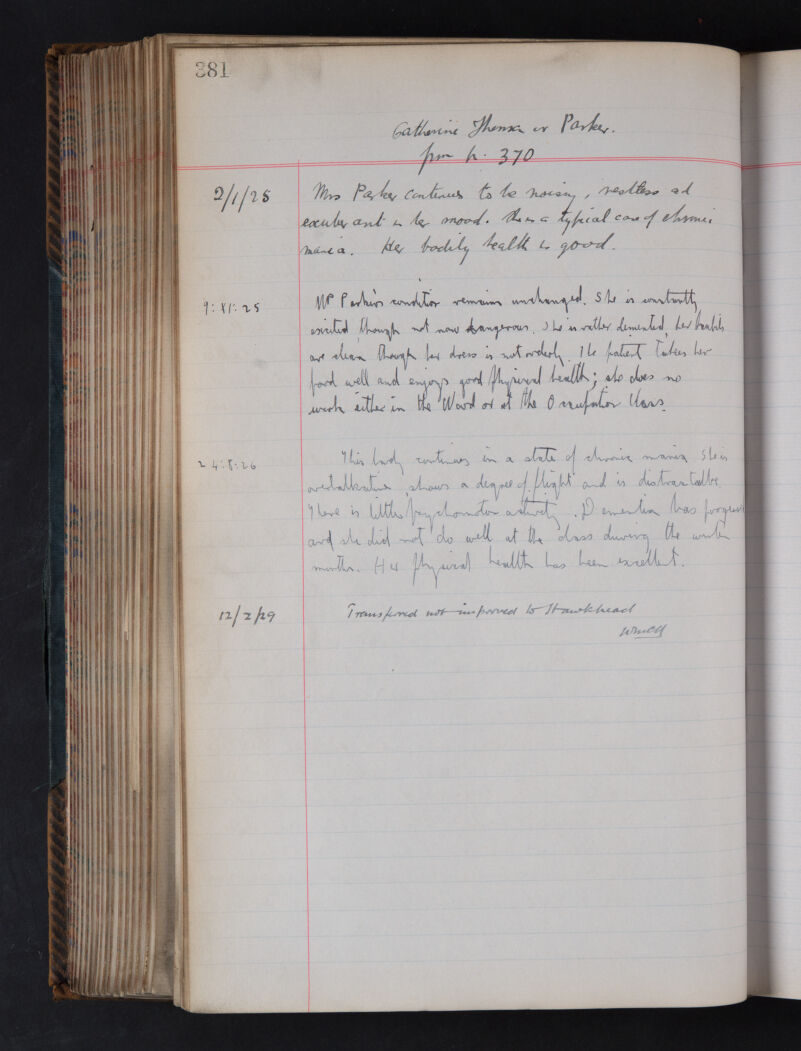 381
Catherine Thomson or Parker.
from p. 370
2/1/25 Mrs Parker continues to be noisy, restless ad
exuberant in her mood. She is a typical case of chronic
mania. Her bodily health is good.
9:XI:25 Mrs Parker's condition remains unchanged. She is constantly
excited though not now dangerous. She is rather demented, her habits
are clean though her dress is not orderly. The patient takes her
food well and enjoys good physical health; she does no
work either in the Ward or at the Occupation Class.
24:8:26 This lady continues in a state of chronic mania. She is
overtalkative, shows a degree of flight and is distractable.
There is little psychomotor activity. Dementia has progressed
and she did not do well at the class during the winter
months. Her physical health has been excellent.
12/2/29 Transferred not improved to Hawkhead